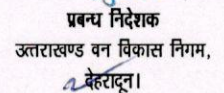 प्रबन्ध निदेशक
उत्तराखण्ड वन विकास निगम,
देहरादून।